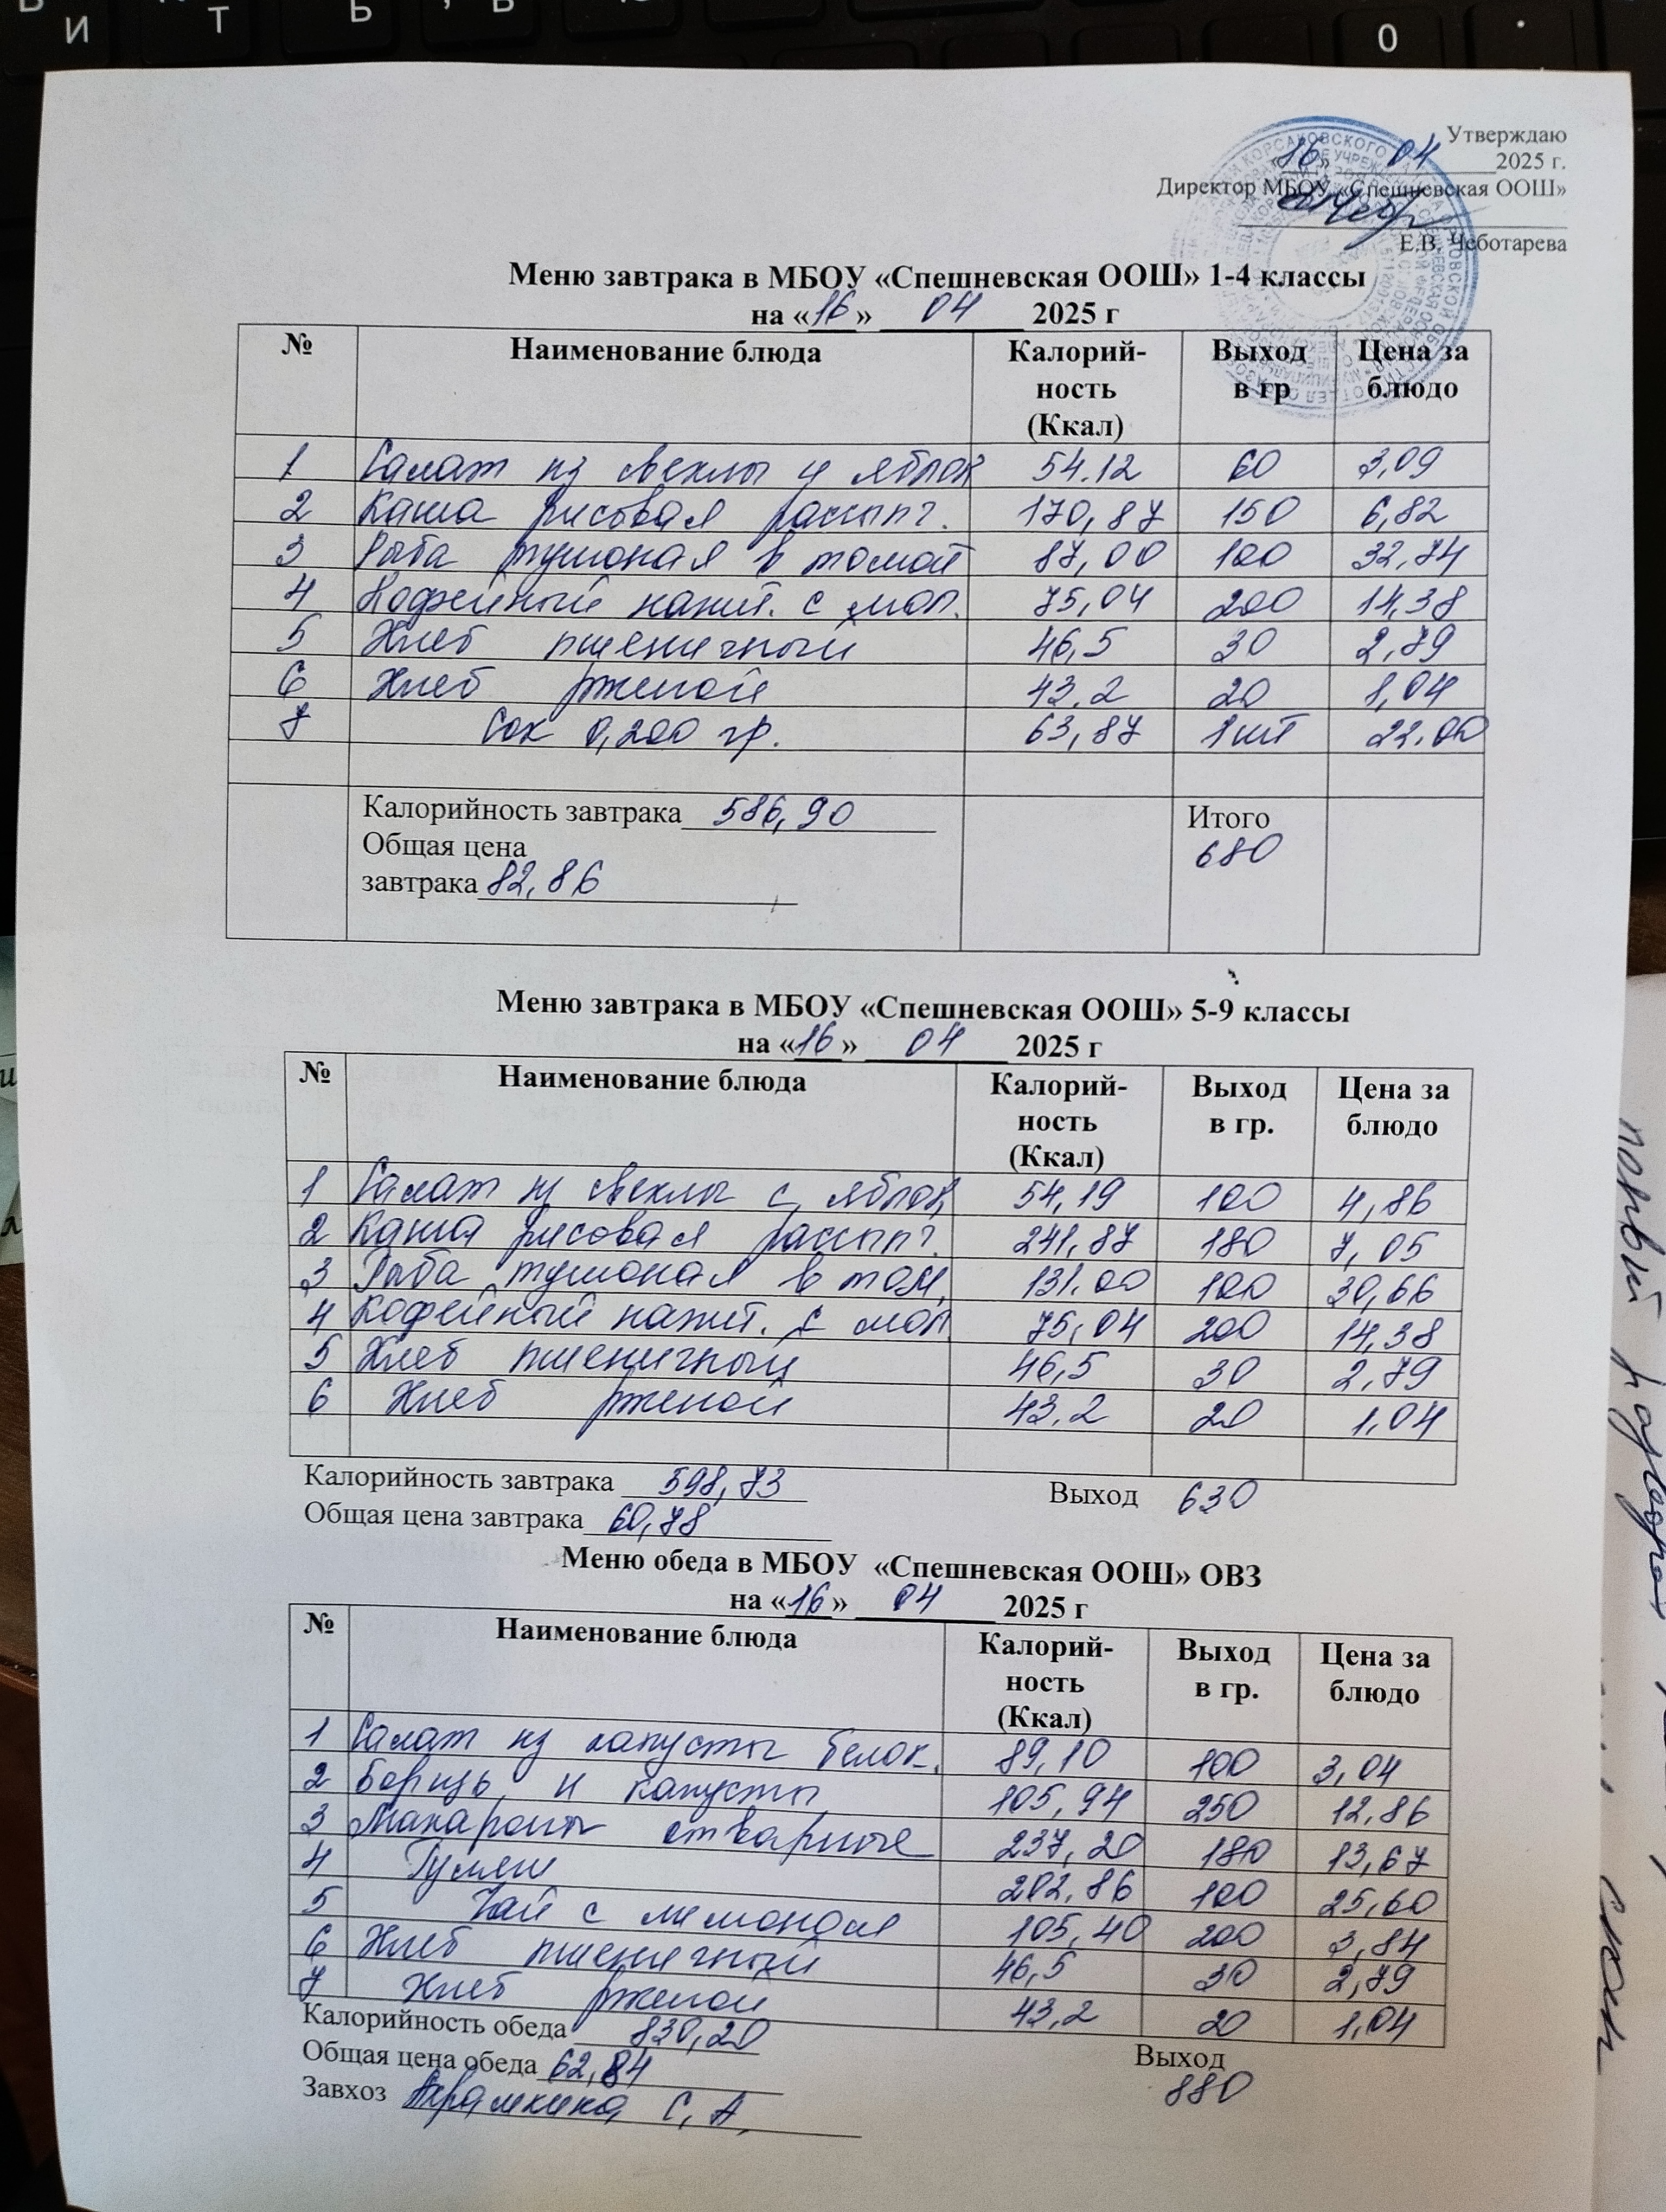 И Т Ь 0
Утверждаю
«16» 04 2025 г.
Директор МБОУ «Спешневская ООШ»
Е.В. Чеботарева
Меню завтрака в МБОУ «Спешневская ООШ» 1-4 классы
на «16» 04 2025 г
№ Наименование блюда Калорий-ность (Ккал) Выход в гр Цена за блюдо
1 Салат из свеклы и яблок 54.12 60 3,09
2 Каша рисовая рассып. 170,87 150 6,82
3 Рыба тушоная в томат 87,00 100 32,74
4 Кофейный напит. с мол. 75,04 200 14,38
5 Хлеб пшеничный 46,5 30 2,79
6 Хлеб ржаной 43,2 20 1,04
7 Сок 0,200 гр. 63,87 1шт 22.00
Калорийность завтрака 586,90 Итого
Общая цена 680
завтрака 82,86
Меню завтрака в МБОУ «Спешневская ООШ» 5-9 классы
на «16» 04 2025 г
№ Наименование блюда Калорий-ность (Ккал) Выход в гр. Цена за блюдо
1 Салат из свеклы с яблок, 54,19 100 4,86
2 Каша рисовая рассып. 241,87 180 7,05
3 Рыба тушоная в том, 131.00 100 30,66
4 Кофейный напит. с мол 75,04 200 14,38
5 Хлеб пшеничный 46,5 30 2,79
6 Хлеб ржаной 43,2 20 1,04
Калорийность завтрака 598,73 Выход 630
Общая цена завтрака 60,78
Меню обеда в МБОУ «Спешневская ООШ» ОВЗ
на «16» 04 2025 г
№ Наименование блюда Калорий-ность (Ккал) Выход в гр. Цена за блюдо
1 Салат из капусты белок. 89,10 100 3,04
2 Борщь и капусты 105,94 250 12,86
3 Макароны отварные 237,20 180 13,67
4 Гуляш 202,86 100 25,60
5 Чай с лимоном 105,40 200 3,84
6 Хлеб пшеничный 46,5 30 2,79
7 Хлеб ржаной 43,2 20 1,04
Калорийность обеда 830,20 Выход
Общая цена обеда 62,84 880
Завхоз С, А,